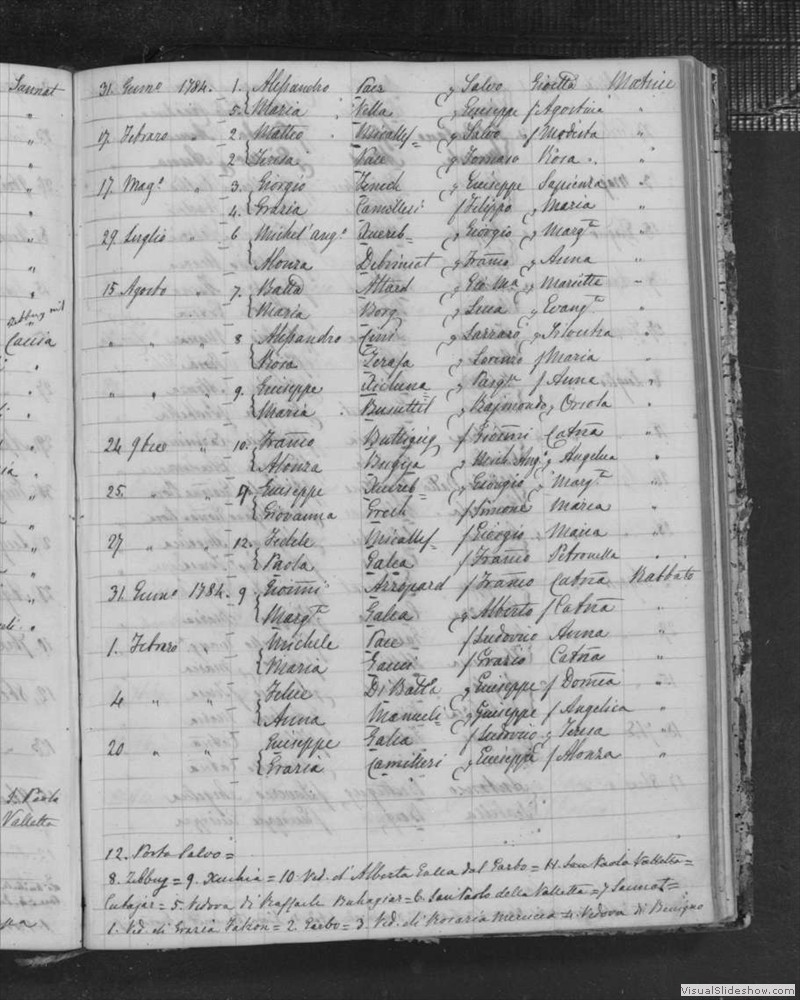 Sannat
31. Genn° 1784. 1. Alessandro Pace Salvo Gioetta Matrice
5. Maria Vella Giuseppe f Agostina "
17. Febraro " 2. Matteo Micallef Salvo f Modesta "
2 Teresa Pace Tomaso Rosa "
17. Mag° " 3. Giorgio Fenech Giuseppe Sapienza "
4. Grazia Camilleri f Filippo Maria "
29. Luglio " 6. Michel'ang° Querib Giorgio Marg.ta "
Alonza Debrincat Franco Anna "
15 Agosto " 7. Batta Attard Gio Ma Marietta "
Maria Borg Luca Evang.ta "
" " " 8 Alessandro Cini Lazzaro Silvestra "
Rosa Zerafa Lorenzo f Maria "
" " " 9. Giuseppe Xicluna Pasq.le f Anna "
Maria Busuttil Rajmondo Orsola "
24 9bre " 10. Franco Buttigieg f Gioanni Catña "
Alonza Bugeja Mich. Ang. Angelica "
25. " " 9. Giuseppe Querib Giorgio Marg.ta "
Giovanna Grech f Simone Maria "
27 " " 12. Fedele Micallef f Giorgio Maria "
Paola Galea f Franco Petronilla "
31. Genn° 1784. 9 Gioanni Azzopard f Franco Catña Rabbato
Marg.ta Galea Alberto f Catña "
1. Febraro " Michele Pace f Ludovico Anna "
Maria Gauci f Grazio Catña "
4 " " Felice Di Batta Giuseppe f Domca "
Anna Manueli Giuseppe f Angelica "
20 " " Giuseppe Galea f Ludovico Teresa "
Grazia Camilleri Giuseppe f Alonza "
S. Paolo
Valletta
12. Porto Salvo =
8. Zebbug = 9. Xeuchia = 10. Ved. d'Alberto Galea dal Garbo = 11. San Paolo Valletta =
= 5. Vedova di Raffaele Buhagiar = 6. San Paolo della Valletta = 7 Sannat =
1. Ved. di Grazia Falzon = 2. Garbo = 3 Ved. di Rosaria = 4. Vedova di Benigno
VisualSlideshow.com